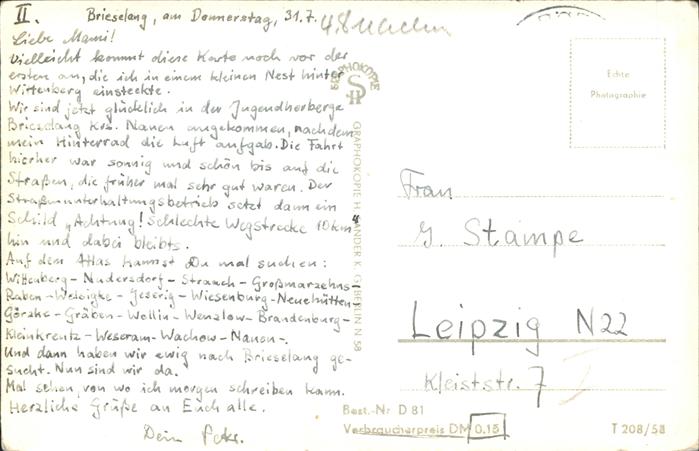 II. Brieselang, am Donnerstag, 31.7.
Liebe Mami!
Vielleicht kommt diese Karte noch vor der
ersten an, die ich in einem kleinen Nest hinter
Wittenberg einsteckte.
Wir sind jetzt glücklich in der Jugendherberge
Brieselang Krs. Nauen angekommen, nachdem
mein Hinterrad die Luft aufgab. Die Fahrt
hierher war sonnig und schön bis auf die
Straßen, die früher mal sehr gut waren. Der
Straßenunterhaltungsbetrieb setzt dann ein
Schild „Achtung! Schlechte Wegstrecke 10km“
hin und dabei bleibts.
Auf dem Atlas kannst Du mal suchen:
Wittenberg – Nudersdorf – Straach – Großmarzehns –
Raben – – Jeserig – Wiesenburg – Neuehütten
Görzke – Gräben – Wollin – Wenzlow – Brandenburg –
Kleinkreutz – Weseram – Wachow – Nauen –.
Und dann haben wir ewig nach Brieselang ge-
sucht. Nun sind wir da.
Mal sehen, von wo ich morgen schreiben kann.
Herzliche Grüße an Euch alle.
Dein Peter.
GRAPHOKOPIE
GRAPHOKOPIE H. SANDER K. G. BERLIN N 58
Echte
Photographie
Frau
J. Stampe
Leipzig N22
Kleiststr. 7
Best.-Nr D 81
Verbraucherpreis DM 0.15
T 208/58